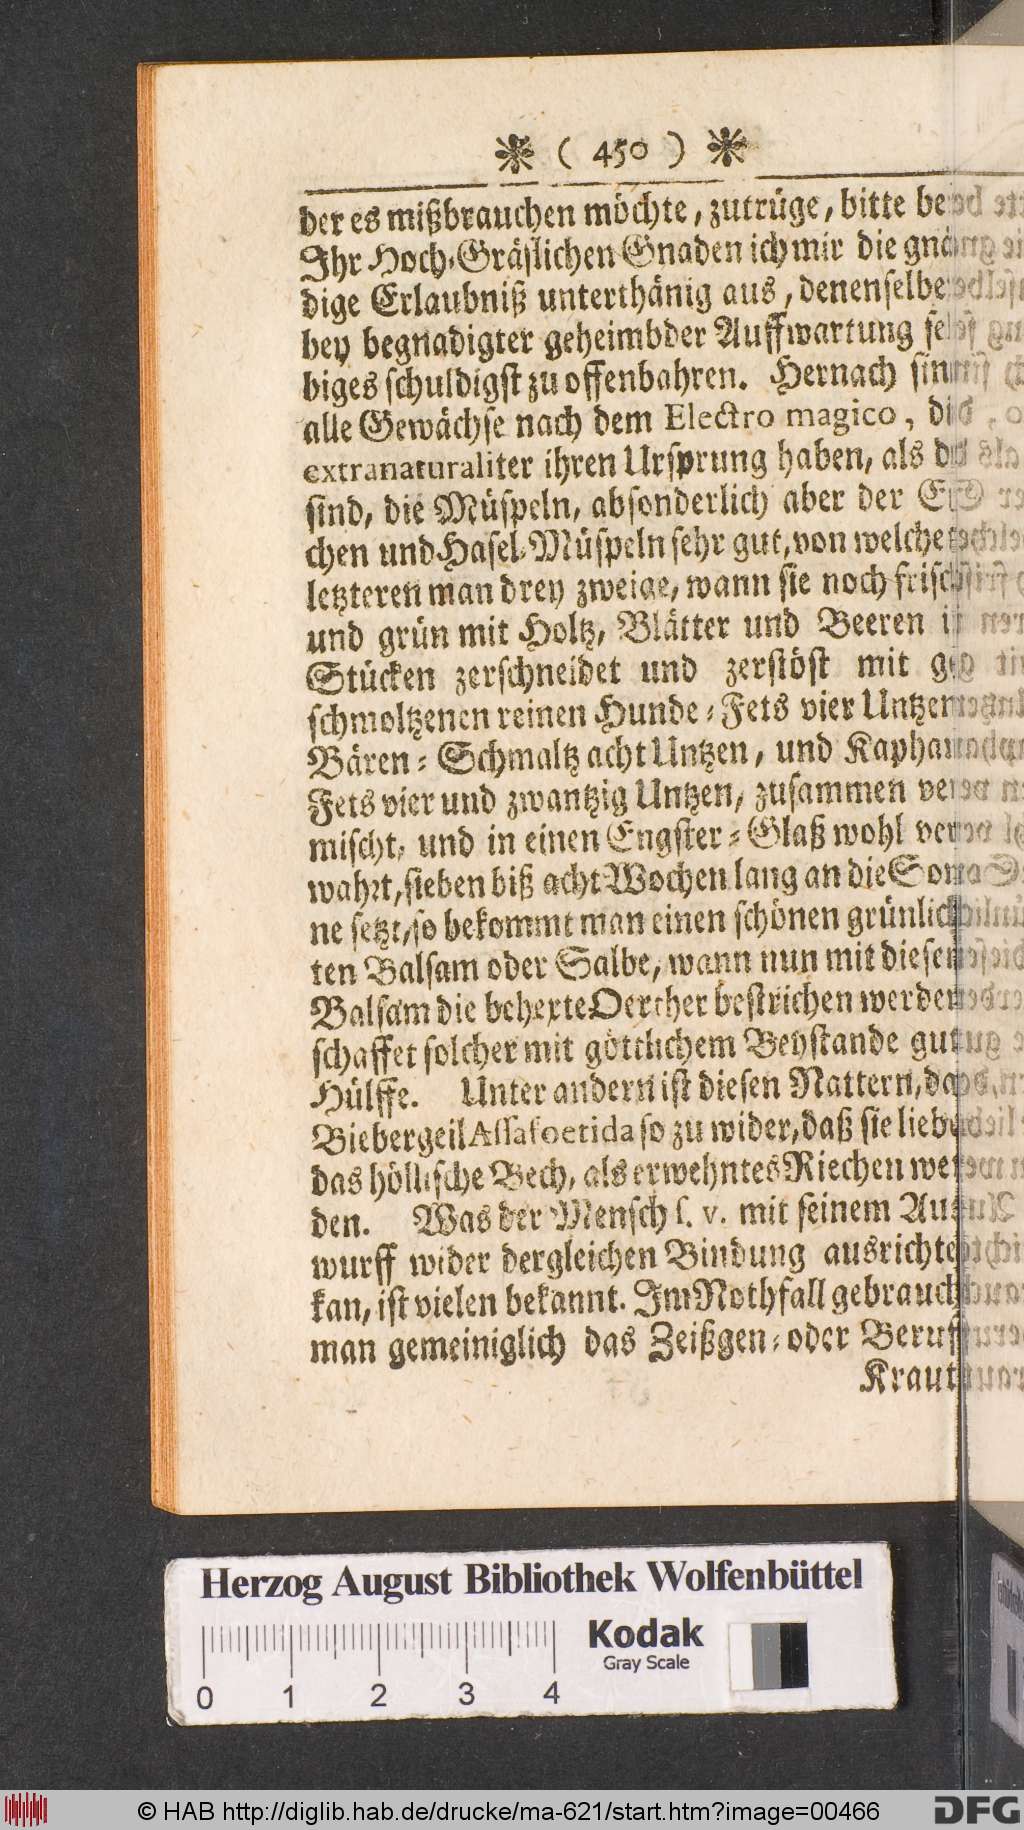 ( 450 )
der es mißbrauchen möchte, zutrüge, bitte be
Ihr Hoch-Gräflichen Gnaden ich mir die gnä
dige Erlaubniß unterthänig aus, denenselbe
bey begnadigter geheimbder Auffwartung sel
biges schuldigst zu offenbahren. Hernach sin
alle Gewächse nach dem Electro magico, di
extranaturaliter ihren Ursprung haben, als d
sind, die Müspeln, absonderlich aber der Ei
chen und Hasel-Müspeln sehr gut, von welche
letzteren man drey zweige, wann sie noch frisch
und grün mit Holtz, Blätter und Beeren i
Stücken zerschneidet und zerstöst mit ge
schmoltzenen reinen Hunde-Fets vier Untzen
Bären-Schmaltz acht Untzen, und Kaphan
Fets vier und zwantzig Untzen, zusammen ver
mischt, und in einen Engster-Glaß wohl ver
wahrt, sieben biß acht Wochen lang an die Son
ne setzt, so bekommt man einen schönen grünlich
ten Balsam oder Salbe, wann nun mit diesen
Balsam die behexte Oerther bestrichen werden
schaffet solcher mit göttlichem Beystande gut
Hülffe. Unter andern ist diesen Nattern, da
Biebergeil Assafoetida so zu wider, daß sie lieb
das höllische Bech, als erwehntes Riechen we
den. Was der Mensch s. v. mit seinem Aus
wurff wider dergleichen Bindung ausrichte
kan, ist vielen bekannt. Im Nothfall gebrauch
man gemeiniglich das Zeißgen- oder Beruf
Kraut
Herzog August Bibliothek Wolfenbüttel
Kodak
Gray Scale
0 1 2 3 4
© HAB http://diglib.hab.de/drucke/ma-621/start.htm?image=00466
DFG